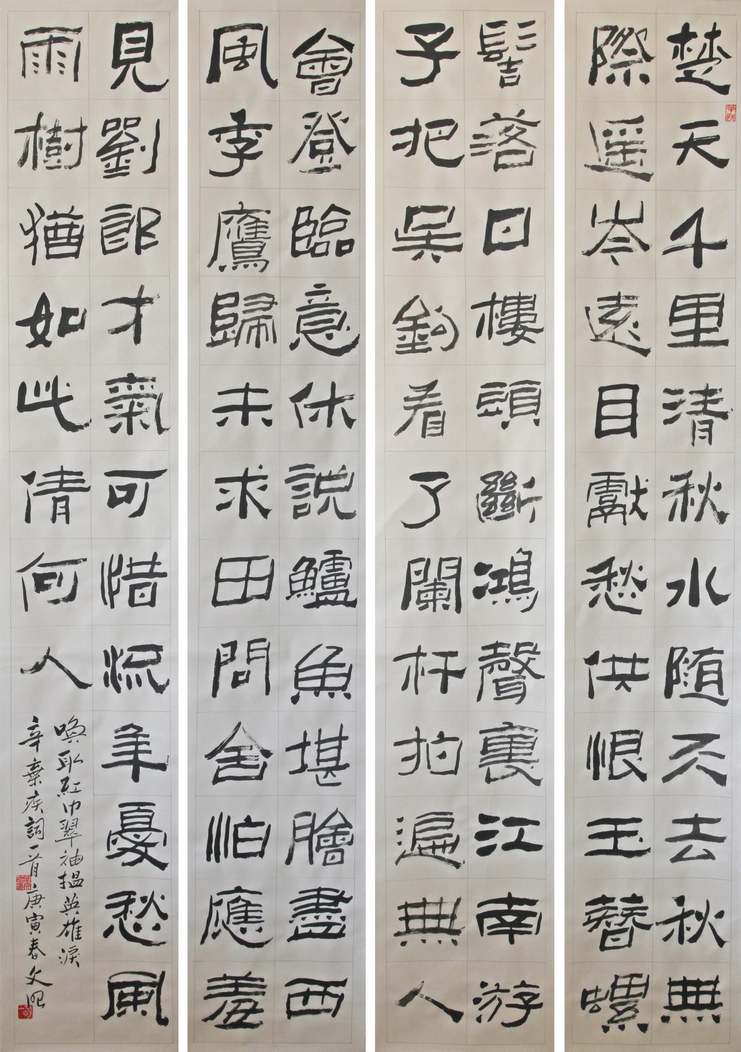 楚天千里清秋水随天去秋無
際遥岑遠目獻愁供恨玉簪螺
髻落日樓頭斷鴻聲裏江南游
子把吳鉤看了闌杆拍遍無人
會登臨意休説鱸魚堪膾盡西
風季鷹歸未求田問舍怕應羞
見劉郎才氣可惜流年憂愁風
雨樹猶如此倩何人
喚取紅巾翠袖搵英雄淚
辛棄疾詞一首庚寅春文